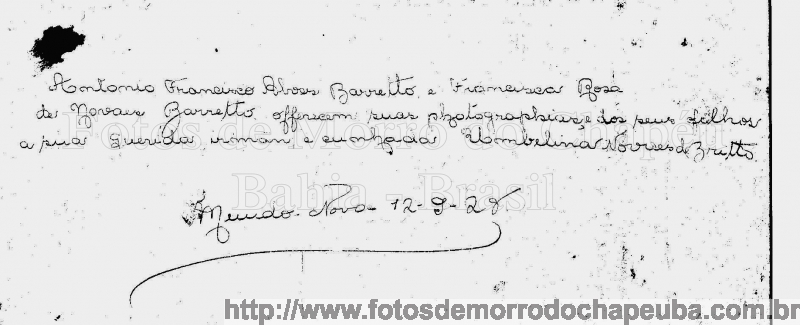 Antonio Francisco Alves Barretto e Francisca Rosa
de Novaes Barretto, offerecem suas photographias, e dos seus filhos
a sua querida irman e cunhada Umbelina Novaes de Britto.
Fotos de Morro do Chapéu
Bahia - Brasil
Mundo Novo 12-9-28
http://www.fotosdemorrodochapeuba.com.br